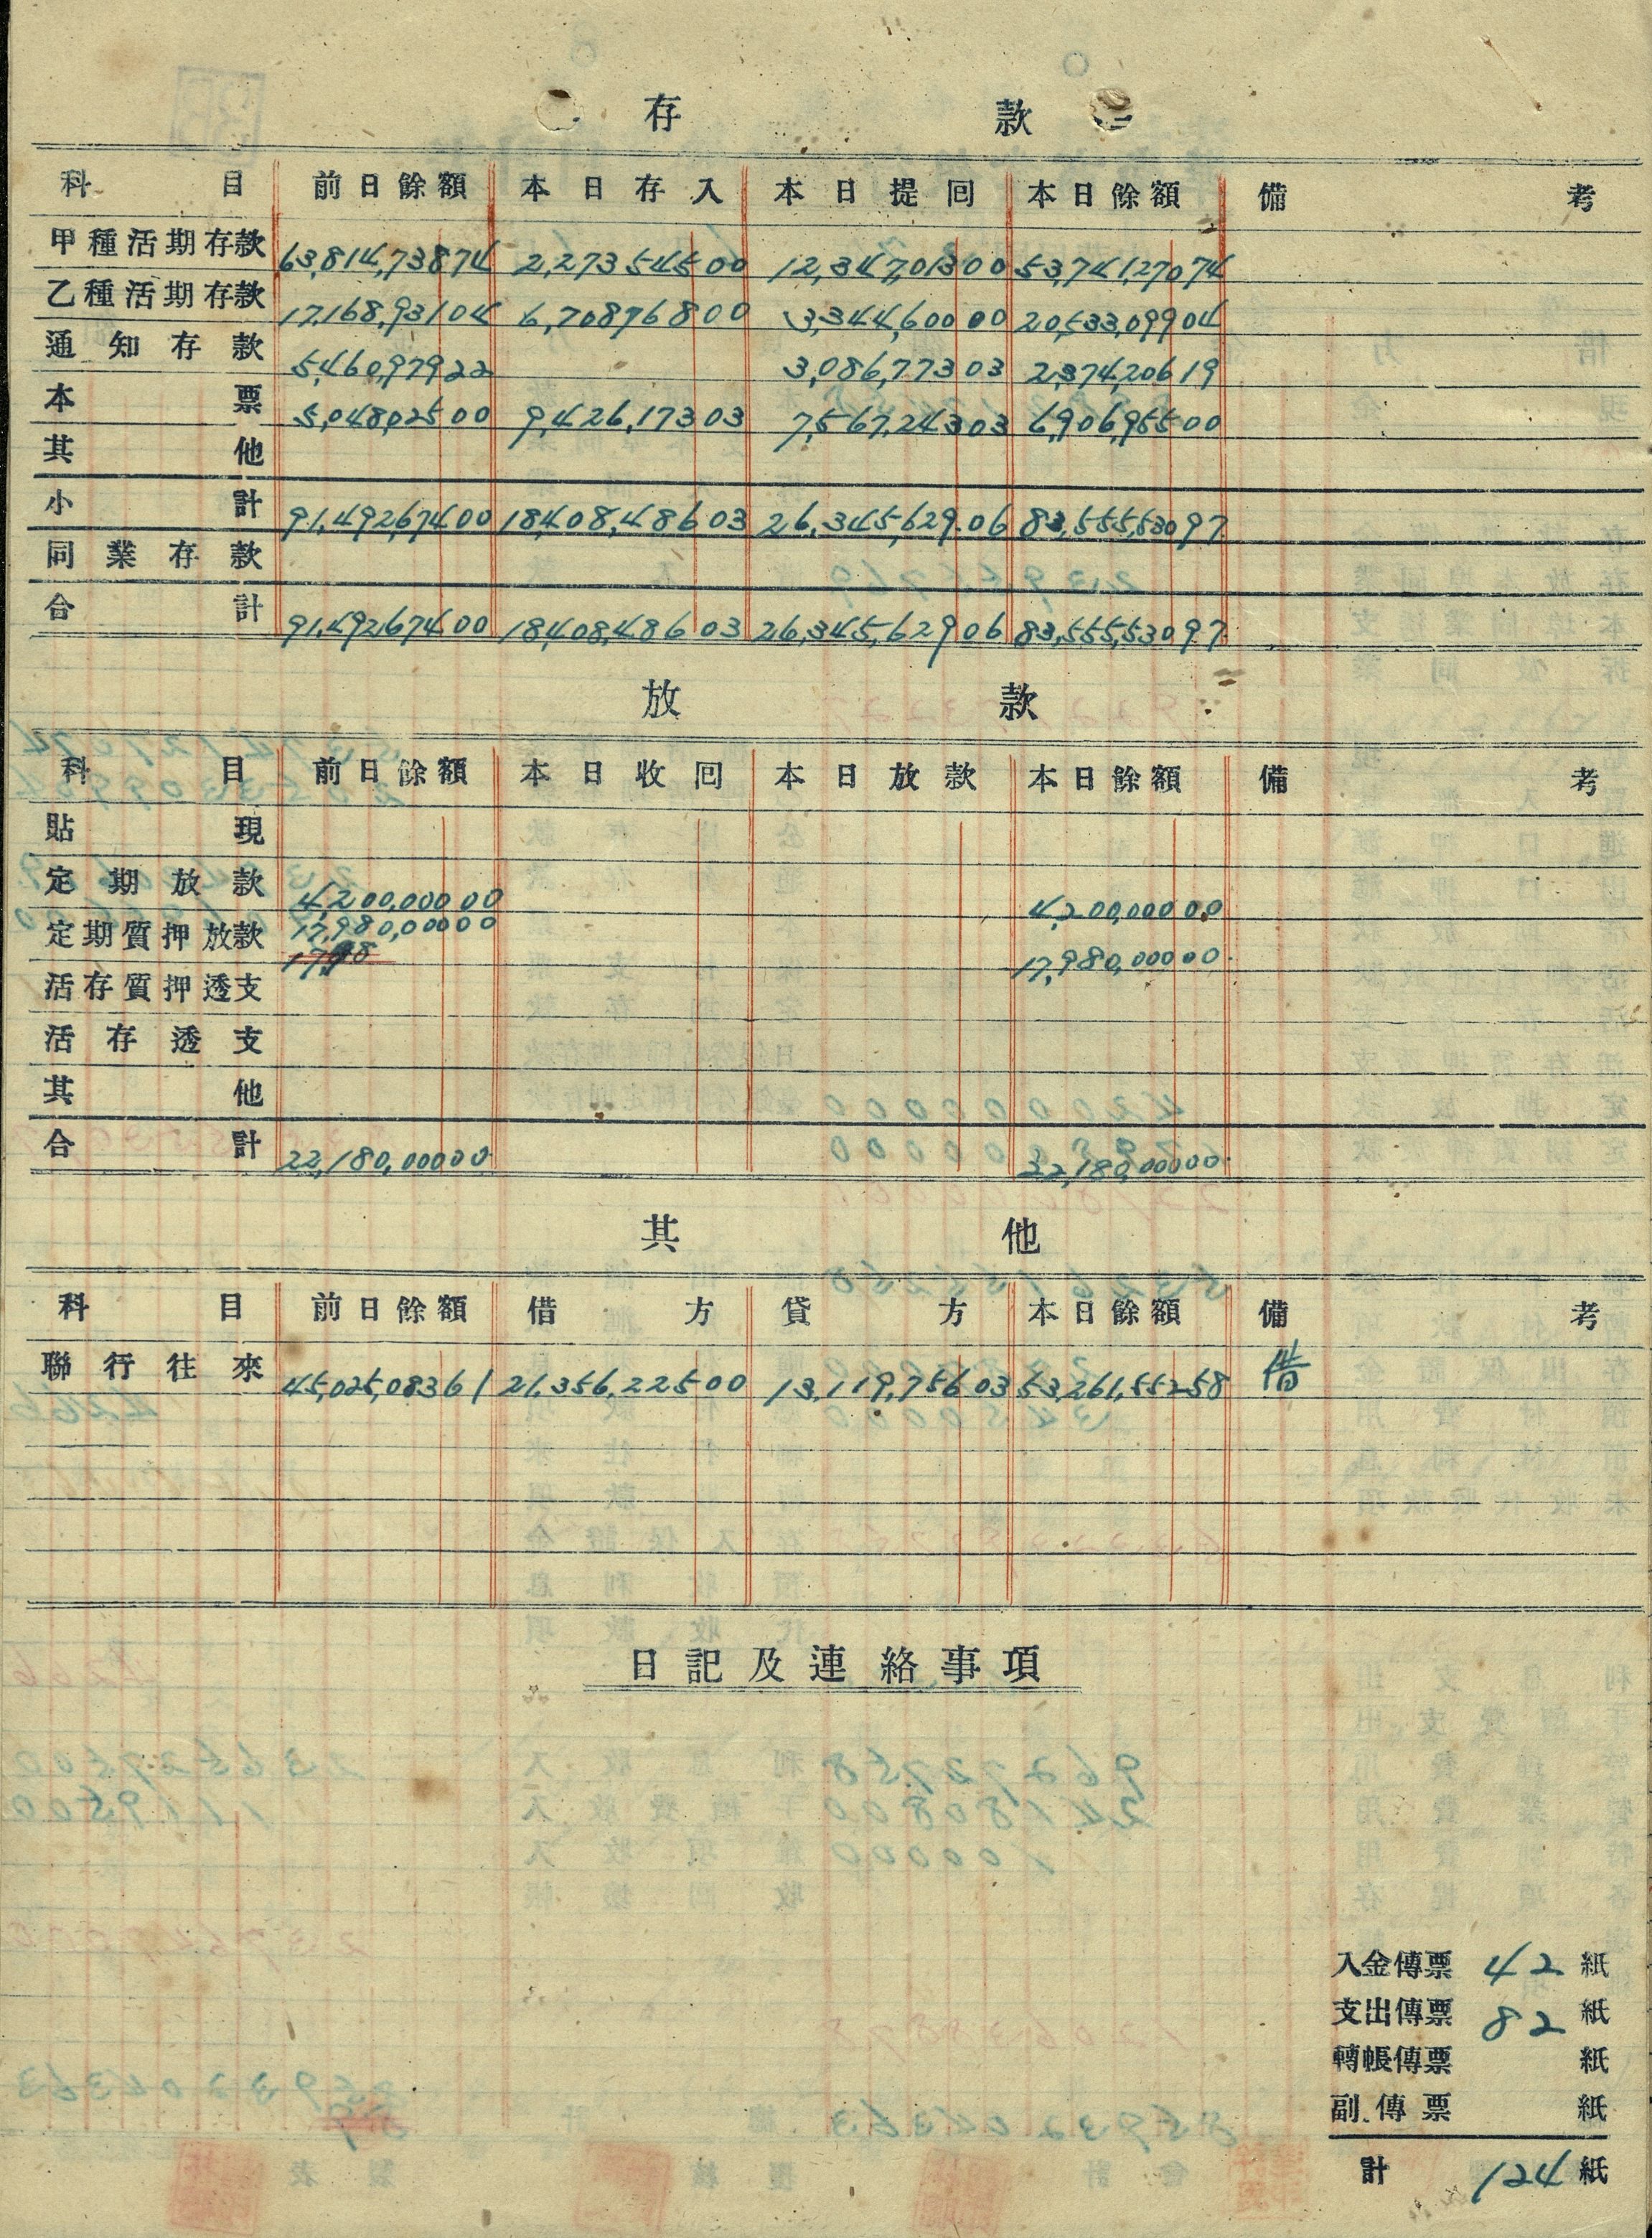 存款
科目 前日餘額 本日存入 本日提回 本日餘額 備考
甲種活期存款 63,814,738 74 2,273,545 00 12,347,013 00 53,741,270 74
乙種活期存款 17,168,931 04 6,708,768 00 3,344,600 00 20,533,099 04
通知存款 5,460,979 22 3,086,773 03 2,374,206 19
本票 5,048,025 00 9,426,173 03 7,567,243 03 6,906,955 00
其他
小計 91,492,674 00 18,408,486 03 26,345,629 06 83,555,530 97
同業存款
合計 91,492,674 00 18,408,486 03 26,345,629 06 83,555,530 97
放款
科目 前日餘額 本日收回 本日放款 本日餘額 備考
貼現
定期放款 4,200,000 00 4,200,000 00
定期質押放款 17,980,000 00 17,980,000 00
活存質押透支
活存透支
其他
合計 22,180,000 00 22,180,000 00
其他
科目 前日餘額 借方 貸方 本日餘額 備考
聯行往來 45,025,083 61 21,356,225 00 13,119,756 03 53,261,552 58 借
日記及連絡事項
入金傳票 42 紙
支出傳票 82 紙
轉帳傳票 紙
副傳票 紙
計 124 紙